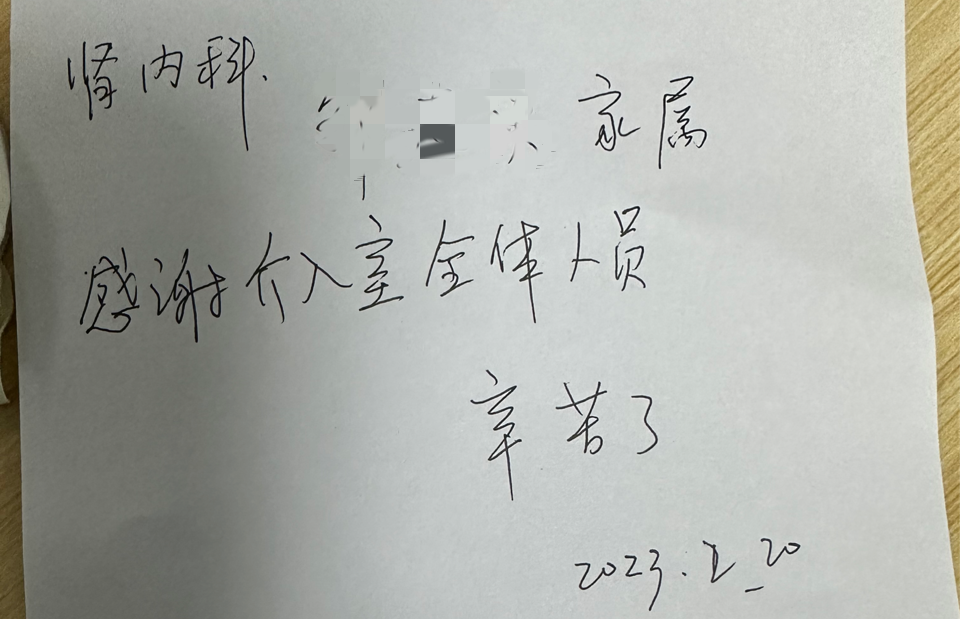 肾内科.
家属
感谢介入室全体人员
辛苦了
2023.2.20